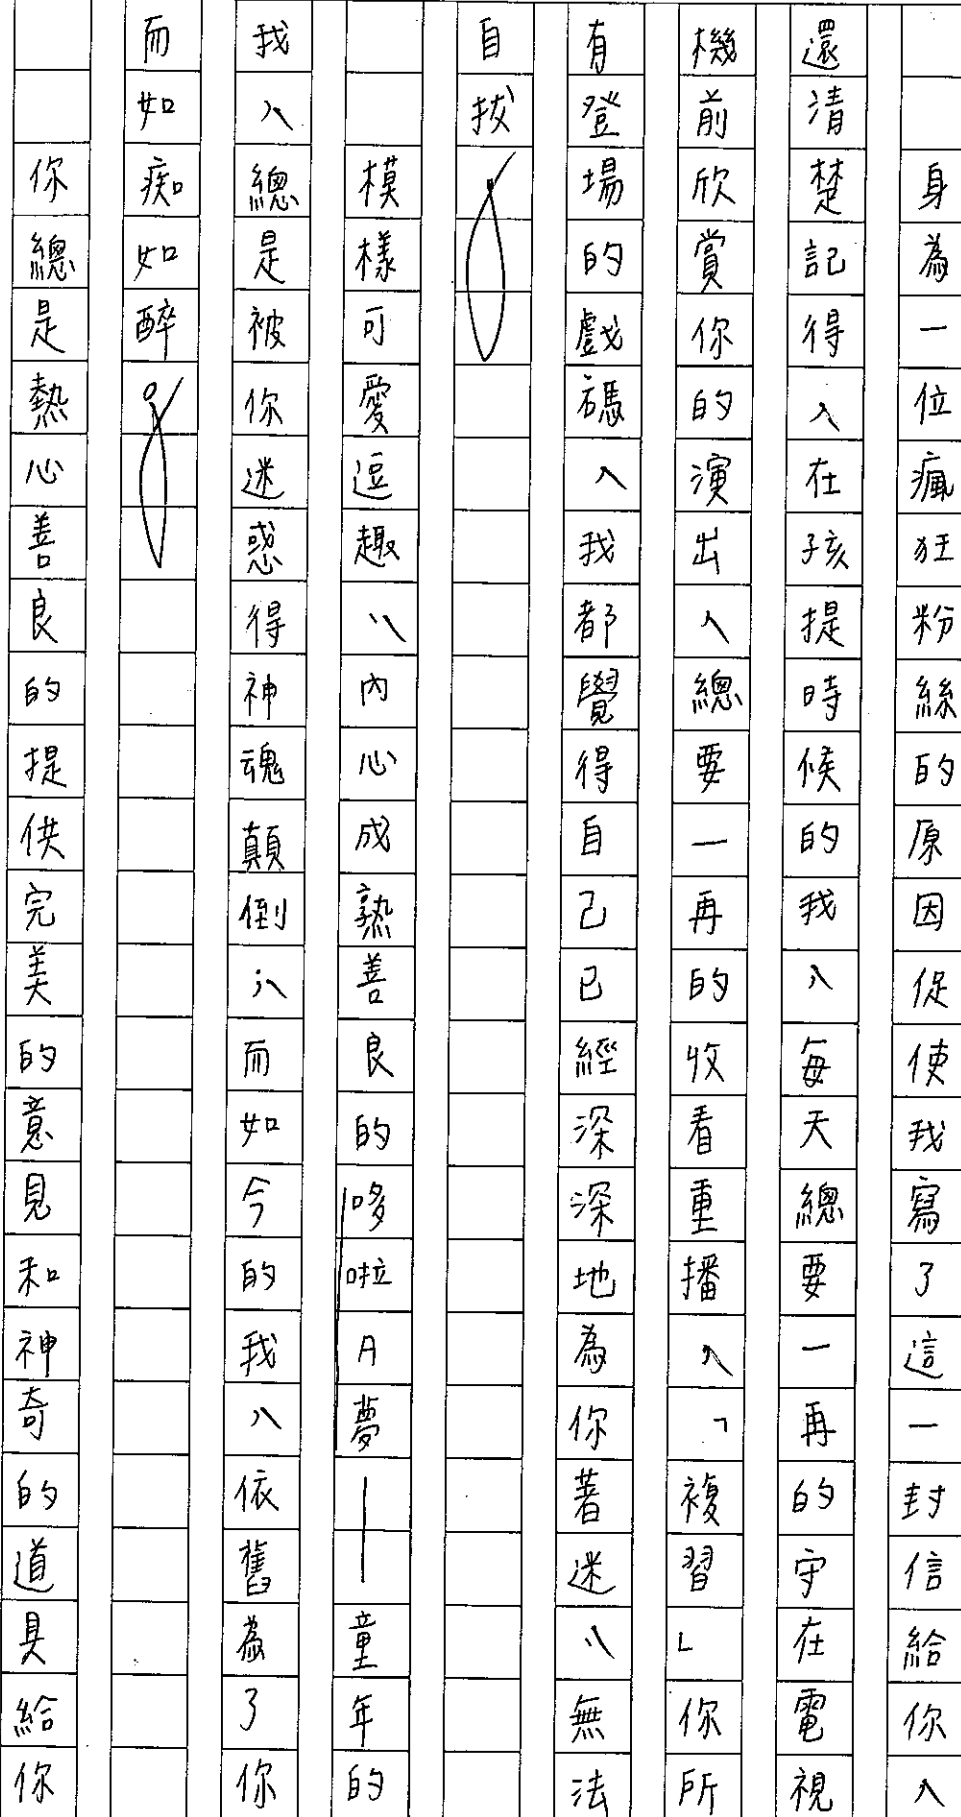 身為一位瘋狂粉絲的原因促使我寫了這一封信給你，
還清楚記得，在孩提時候的我，每天總要一再的守在電視
機前欣賞你的演出，總要一再的收看重播，「複習」你所
有登場的戲碼，我都覺得自己已經深深地為你著迷，無法
自拔！
模樣可愛逗趣，內心成熟善良的哆啦A夢—童年的
我，總是被你迷惑得神魂顛倒；而如今的我，依舊為了你
而如痴如醉。
你總是熱心善良的提供完美的意見和神奇的道具給你